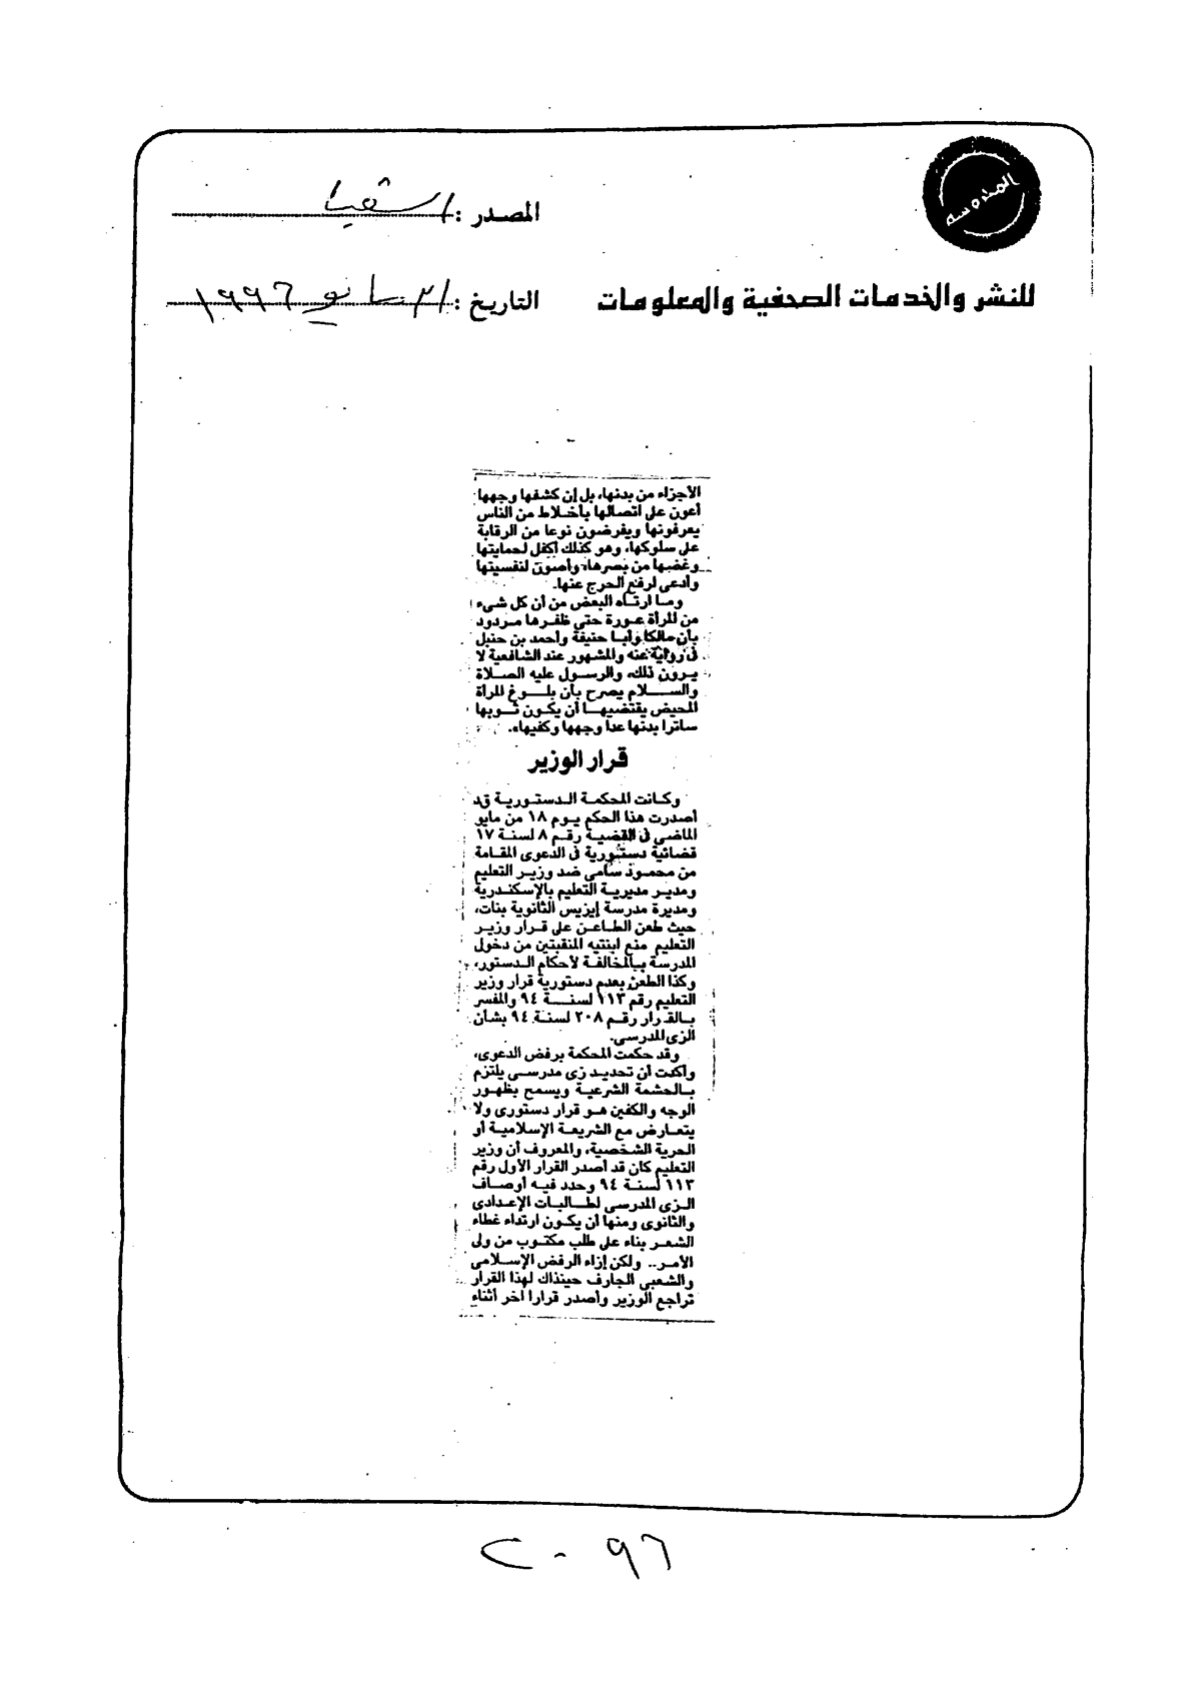 المدروسة
المصدر : الشعب
للنشر والخدمات الصحفية والمعلومات
التاريخ : ٣١ مايو ١٩٩٦
الأجزاء من بدنها، بل إن كشفها وجهها
أعون على اتصالها بأخلاط من الناس
يعرفونها ويفرضون نوعا من الرقابة
على سلوكها، وهو كذلك أكفل لحمايتها
وغضبها من بصرها، وأصون لنفسيتها
وأدعى لرفع الحرج عنها.
وما ارتآه البعض من أن كل شىء
من المرأة عورة حتى ظفرها مردود
بأن مالكا وأبا حنيفة وأحمد بن حنبل
فى رواية عنه والمشهور عند الشافعية لا
يرون ذلك، والرسول عليه الصلاة
والسلام يصرح بأن بلوغ المرأة
المحيض يقتضيها أن يكون ثوبها
ساترا بدنها عدا وجهها وكفيها».
قرار الوزير
وكانت المحكمة الدستورية قد
أصدرت هذا الحكم يوم ١٨ من مايو
الماضى فى القضية رقم ٨ لسنة ١٧
قضائية دستورية فى الدعوى المقامة
من محمود سامى ضد وزير التعليم
ومدير مديرية التعليم بالإسكندرية
ومديرة مدرسة إيزيس الثانوية بنات،
حيث طعن الطاعن على قرار وزير
التعليم منع ابنتيه المنقبتين من دخول
المدرسة بالمخالفة لأحكام الدستور،
وكذا الطعن بعدم دستورية قرار وزير
التعليم رقم ١١٣ لسنة ٩٤ والمفسر
بالقرار رقم ٢٠٨ لسنة ٩٤ بشأن
الزى المدرسى.
وقد حكمت المحكمة برفض الدعوى،
وأكدت أن تحديد زى مدرسى يلتزم
بالحشمة الشرعية ويسمح بظهور
الوجه والكفين هو قرار دستورى ولا
يتعارض مع الشريعة الإسلامية أو
الحرية الشخصية، والمعروف أن وزير
التعليم كان قد أصدر القرار الأول رقم
١١٣ لسنة ٩٤ وحدد فيه أوصاف
الزى المدرسى لطالبات الإعدادى
والثانوى ومنها أن يكون ارتداء غطاء
الشعر بناء على طلب مكتوب من ولى
الأمر.. ولكن إزاء الرفض الإسلامى
والشعبى الجارف حينذاك لهذا القرار
تراجع الوزير وأصدر قرارا آخر أثناء